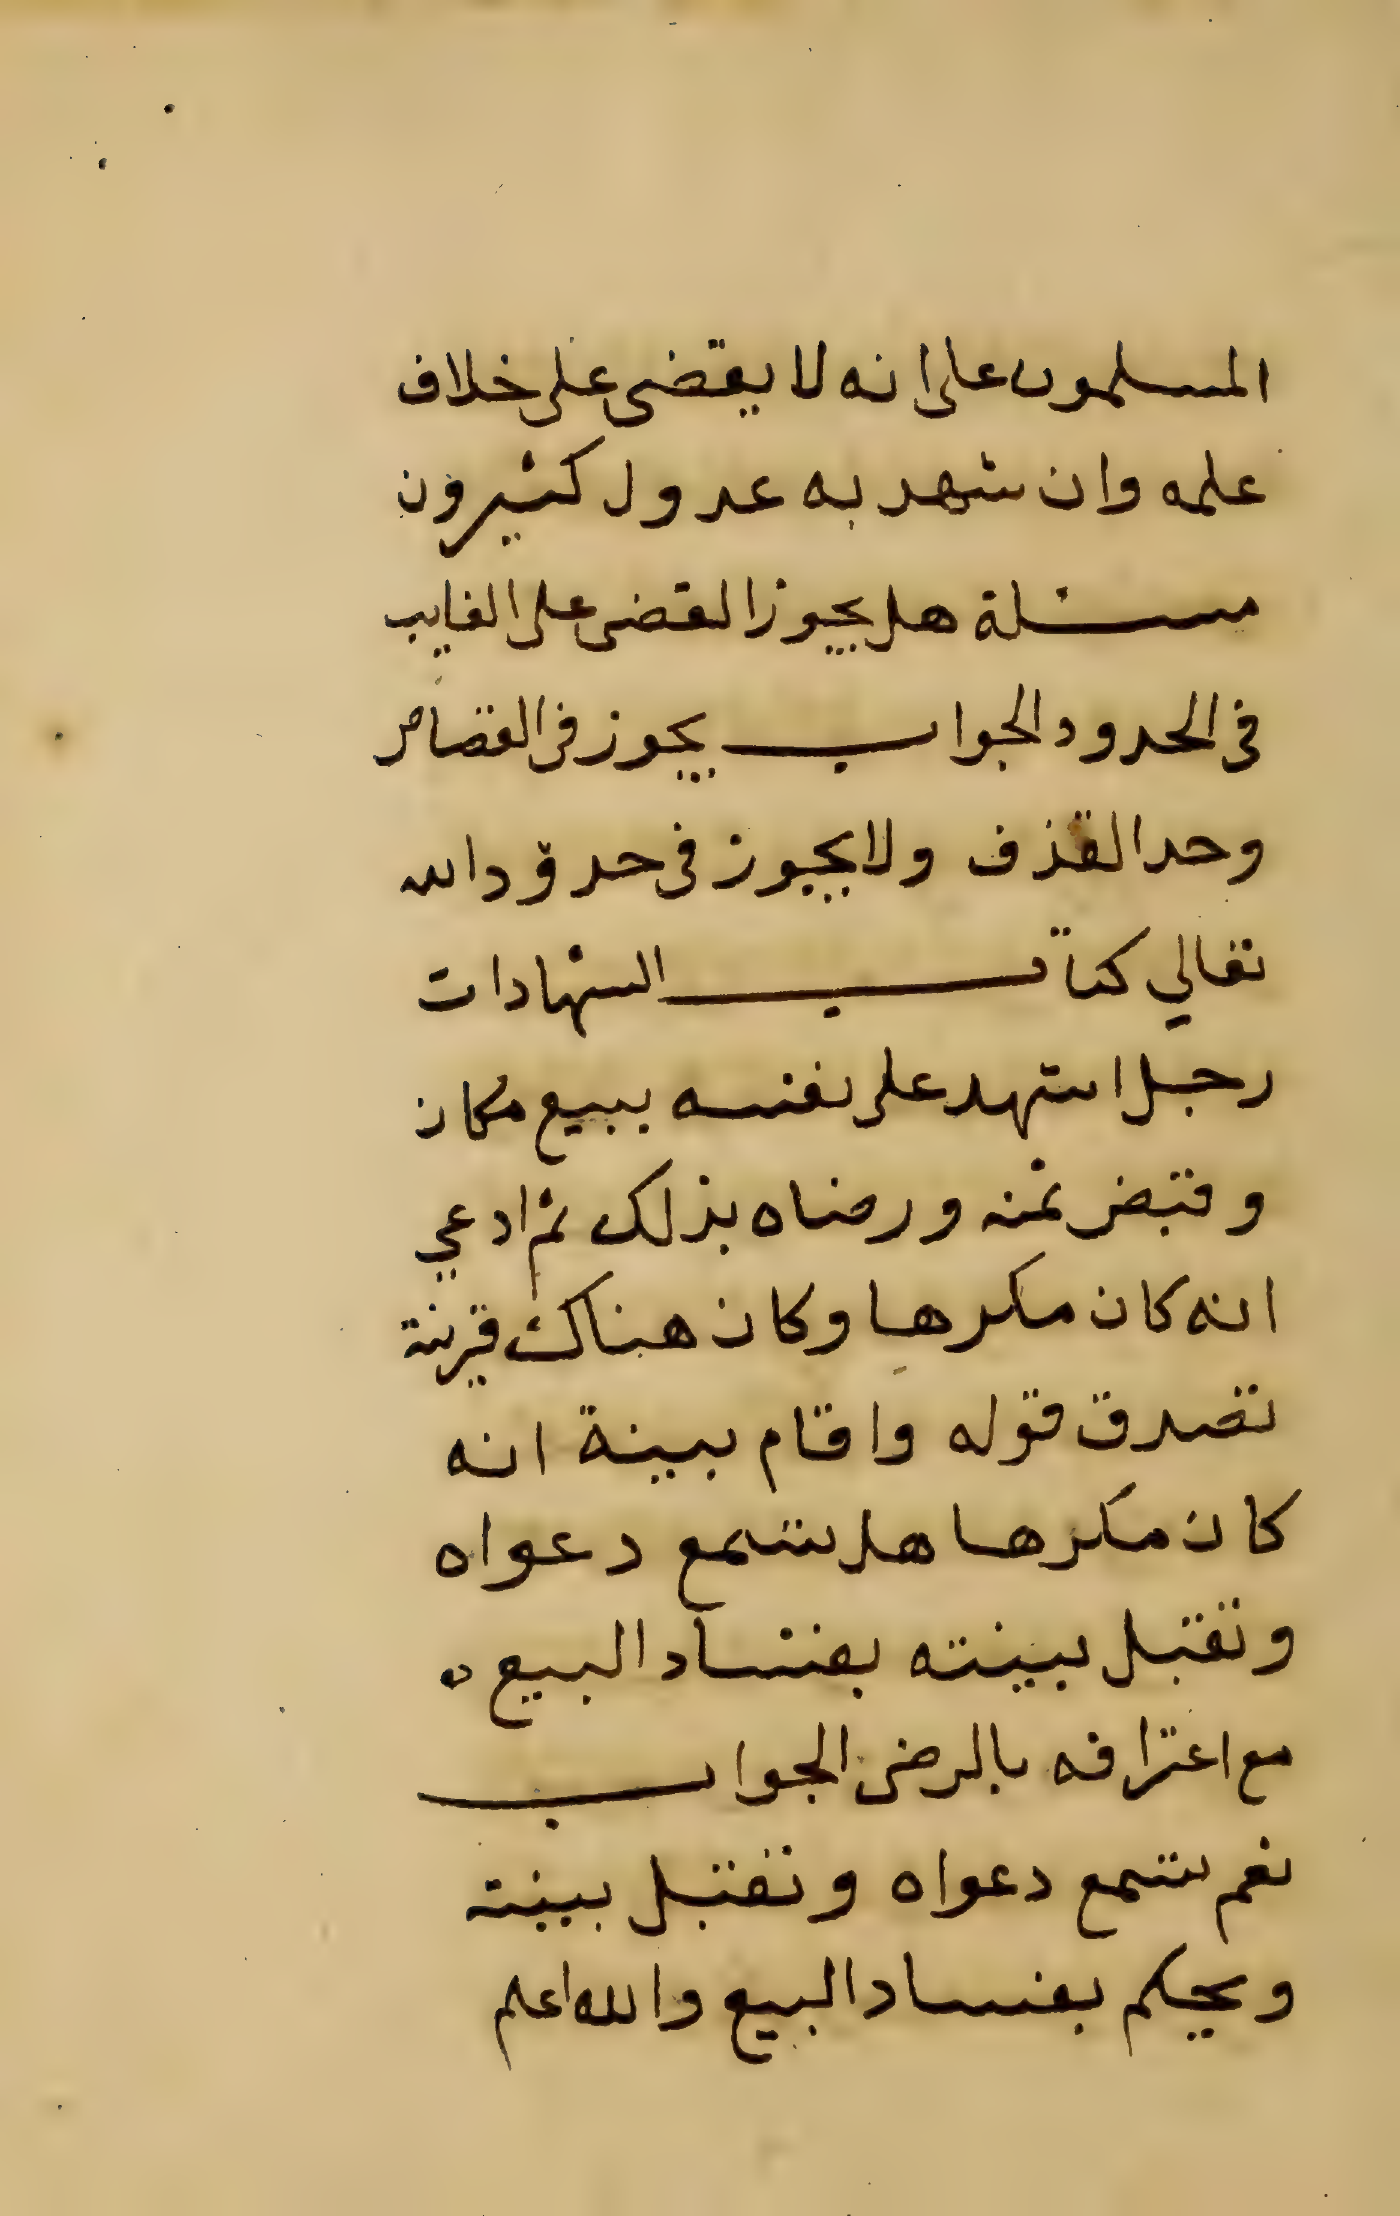 المسلمون على انه لا يقضى على خلاف
علمه وان شهد به عدول كثيرون
مسئلة هل يجوز القضى على الغايب
فى الحدود الجواب يجوز فى القصاص
وحد القذف ولا يجوز فى حدود الله
تعالي كتاب الشهادات
رجل اشهد على نفسه ببيع مكان
وقبض ثمنه ورضاه بذلك ثم ادعي
انه كان مكرها وكان هناك قرينة
تصدق قوله واقام بينة انه
كان مكرها هل تسمع دعواه
وتقبل بينته بفساد البيع
مع اعترافه بالرضى الجواب
نعم تسمع دعواه وتقبل بينته
ويحكم بفساد البيع والله اعلم